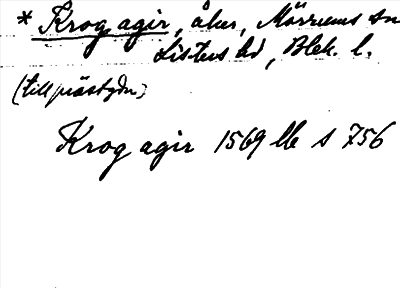 * Krog agir, åker, Mörrums sn
Listers hd, Blek. l.
(till prästgdn)
Krog agir 1569 lb s 756